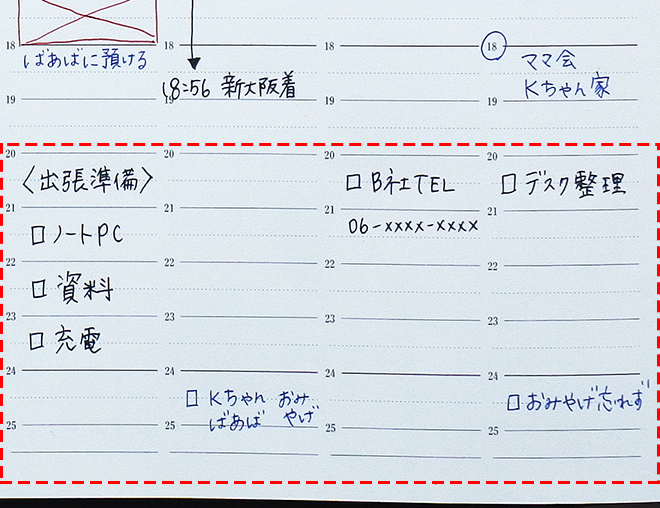 18
ばあばに預ける
19
20
〈出張準備〉
21
□ ノートPC
22
□ 資料
23
□ 充電
24
25
18
18:56 新大阪着
19
20
21
22
23
24
□ Kちゃん おみやげ
ばあば
25
18
19
20
□ B社TEL
21
06-xxxx-xxxx
22
23
24
25
18
ママ会
Kちゃん家
19
20
□ デスク整理
21
22
23
24
□ おみやげ忘れず!
25